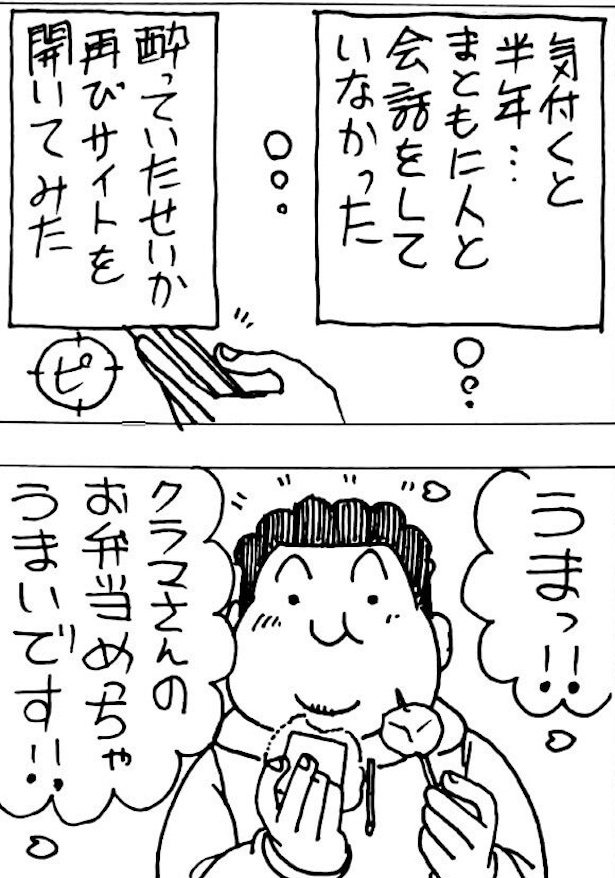 気付くと
半年…
まともに人と
会話をして
いなかった
酔っていたせいか
再びサイトを
開いてみた
ピ
うまっ!!
クラマさんの
お弁当めっちゃ
うまいです!!